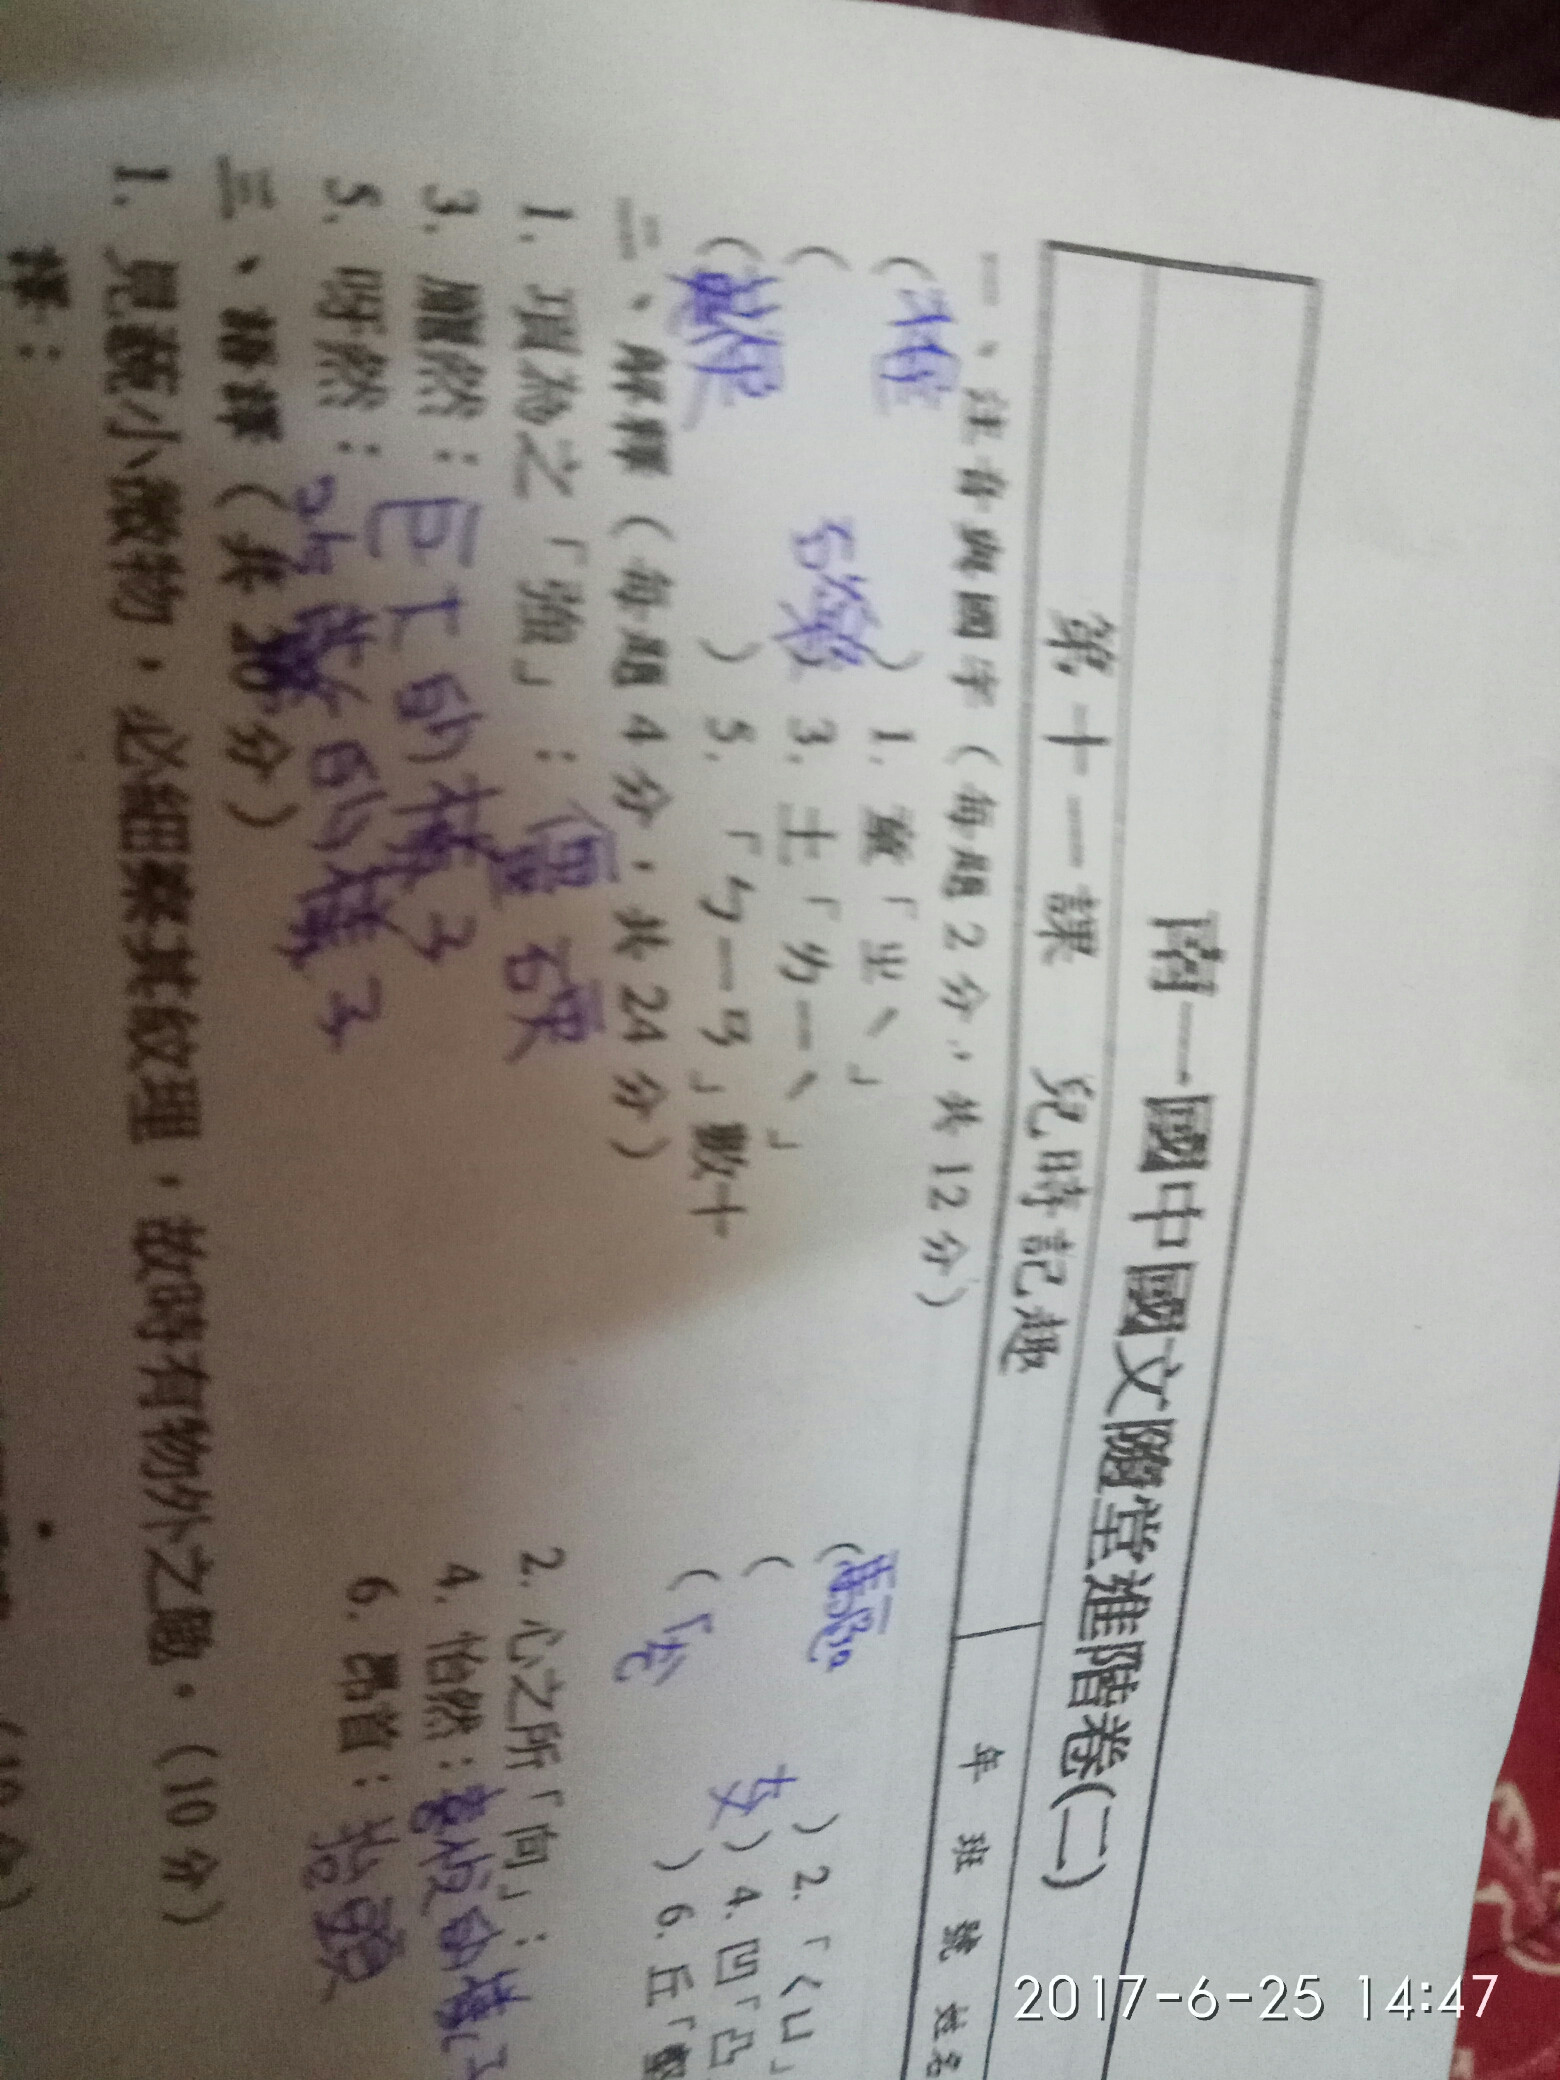 南一國中國文隨堂進階卷(二)
第十一課 兒時記趣 年 班 號 姓名
一、注音與國字（每題2分，共12分）
（ 稚 ）1. 童「ㄓˋ」
（ ）2. 「ㄑㄩ」
（ 礫 ）3. 土「ㄌㄧˋ」
（ ）4. 凹「凸
（ 鞭 ）5. 「ㄅㄧㄢ」數十
（ ）6. 丘「壑
二、解釋（每題4分，共24分）
1. 項為之「強」：僵硬
2. 心之所「向」：
3. 龐然：巨大的樣子
4. 怡然：的樣子
5. 呀然：的樣子
6. 昂首：抬頭
三、語譯（共20分）
1. 見藐小微物，必細察其紋理，故時有物外之趣。（10分）
譯：
（10分）
2017-6-25 14:47